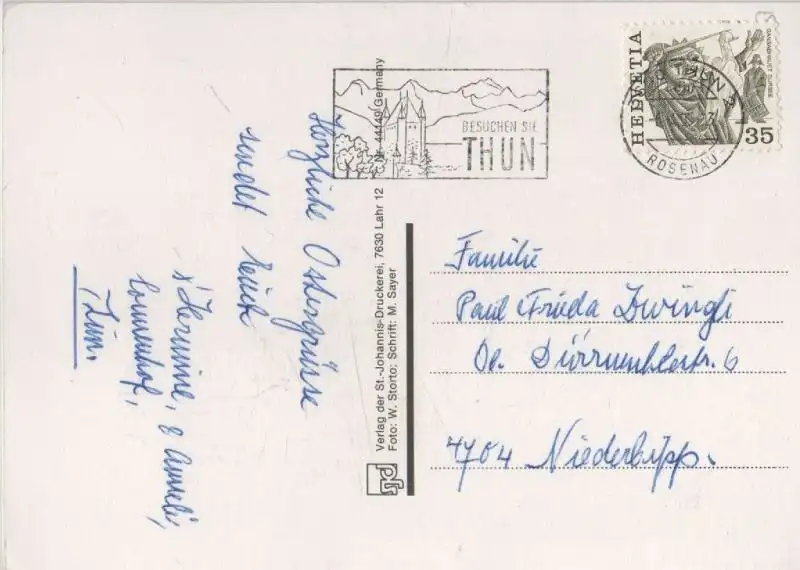 Herzliche Ostergrüsse
sendet Euch
s'Hermine, & Anneli,
Sonnenhof,
Thun.
Verlag der St.-Johannis-Druckerei, 7630 Lahr 12 Nr. 44149 Germany
Foto: W. Storto; Schrift: M. Sayer
BESUCHEN SIE
THUN
HELVETIA
35
ROSENAU
Familie
Paul Frieda Zwingli
Ob. Dürrmühlestr. 6
4704 Niederbipp.